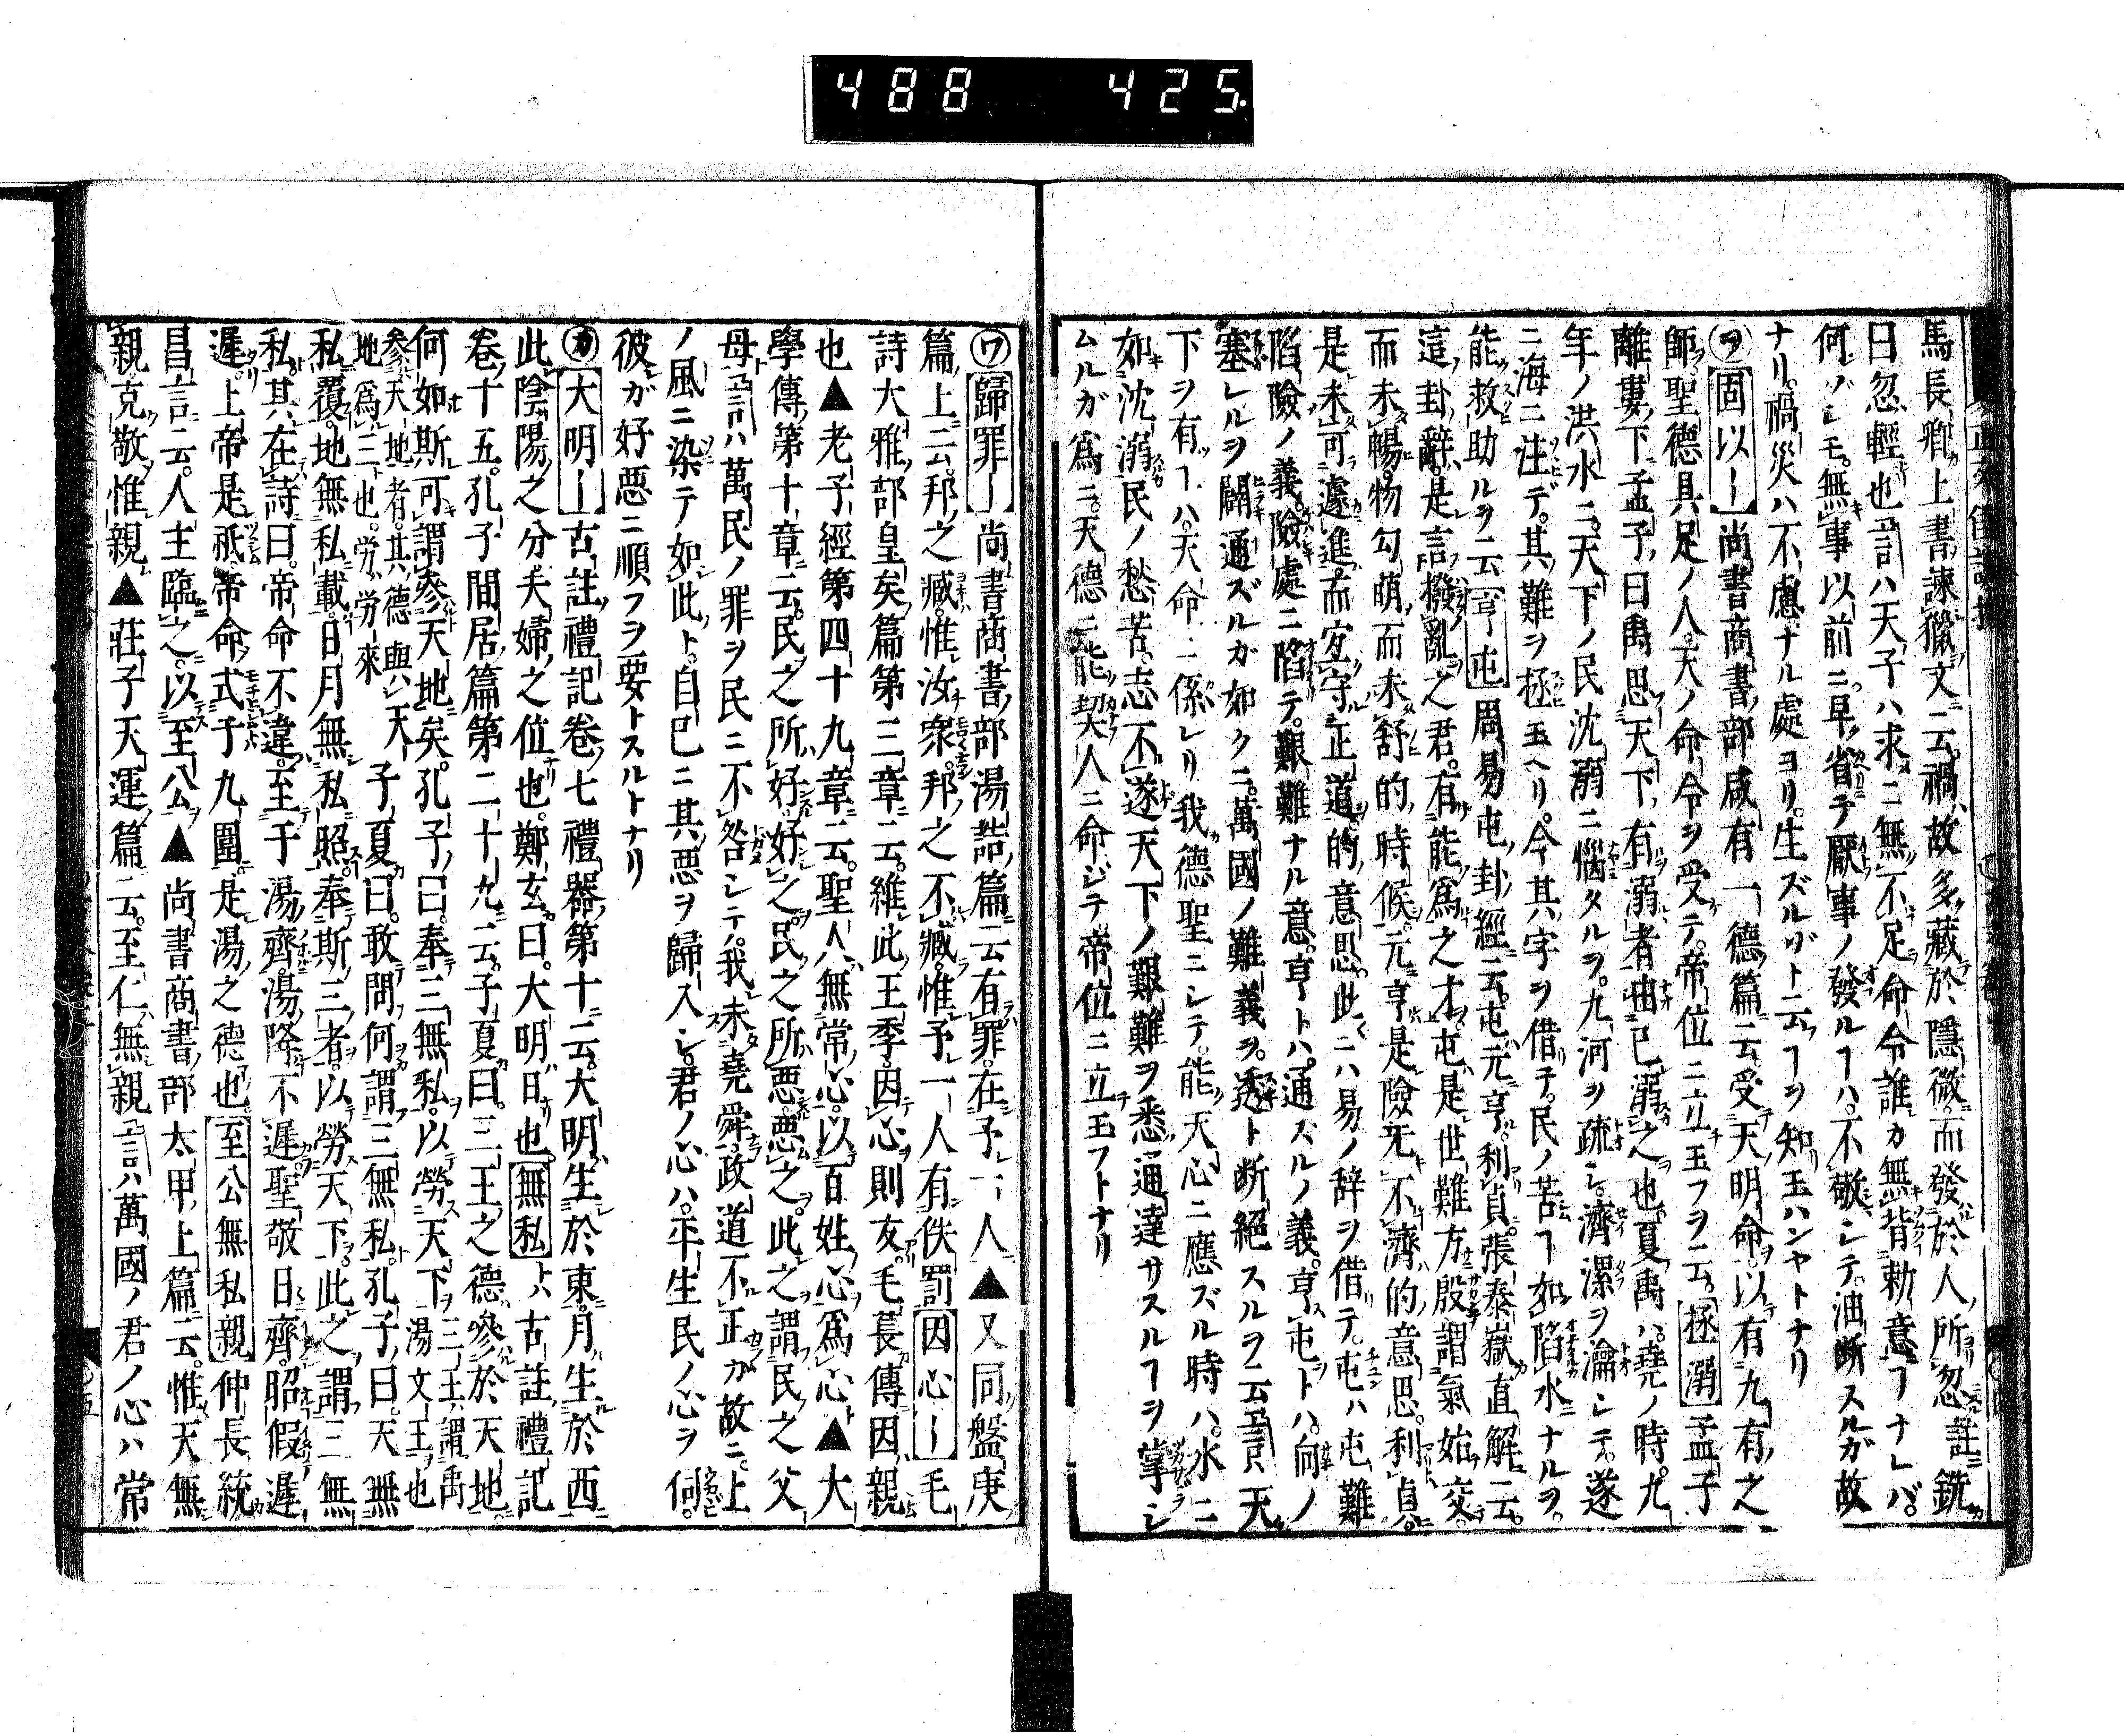 488 425
馬長卿上書諫獵文云禍故多藏於隱微而發於人所忽註ニ銑カ
曰忽輕也言ハ天子ハ求ニ無不足命令誰カ無背勅意フナレバ。
何ノハレモ。無事以前ニ早ク省テ厭事ノ發ルヿハ。不敬シテ油断スルガ故
ナリ。禍災ハ不慮ナル處ヨリ。生ズルゾト云ヿヲ知玉ハンヤトナリ
㋾固以ー尚書商書部咸有一德篇ニ云受天明命以有九有之
師聖德具足ノ人。天ノ命令ヲ受テ。帝位ニ立玉フヲ云。拯溺孟子
離婁下ニ孟子ノ曰禹思天下有溺者由己溺之也夏禹ハ。堯ノ時九
年ノ洪水ニ。天下ノ民沈溺ニ惱タルヲ。九河ヲ疏シ。濟漯ヲ瀹シテ。遂
ニ海ニ注デ。其難ヲ拯玉ヘリ。今其字ヲ借テ。民ノ苦ヿ如陷水ナルヲ。
能救助ルヲ云亨屯周易屯卦經ニ云。屯元亨利貞張泰嶽カ直解ニ云。
這卦辭是言撥亂之君。有能爲之才。屯是世難方殷謂氣始交
而未暢物勾萌而未舒的時候。元亨是險无不濟的意思。利貞
是未可遽進而宜守正道的意思。此ニハ易ノ辞ヲ借テ。屯ハ屯難
陷險ノ義險處ニ陷テ。艱難ナル意。亨トハ。通ズルノ義。亨屯トハ。何ノ
塞レルヲ開通ズルガ如クニ。萬國ノ難義ヲ。透ト断絕スルヲ云言ハ天
下ヲ有ヿハ。天命ニ係レリ我德聖ニシテ。能天心ニ應ズル時ハ。水ニ
如沈溺民ノ愁苦。志不遂天下ノ艱難ヲ悉通達サスルヿヲ掌シ
ムルガ爲ニ。天德ニ能契人ニ命ジテ帝位ニ立玉フトナリ
㋻歸罪ー尚書商書ノ部湯誥篇ニ云有罪。在予一人▲又同盤庚
篇上ニ云。邦之臧惟汝衆。邦之不臧惟予一人有佚罰因心ー毛
詩大雅部皇矣篇第三章ニ云。維此王季。因心則友。毛萇傳因親
也▲老子經第四十九章ニ云。聖人無常心以百姓心爲心▲大
學傳第十章ニ云。民之所好好之民之所惡惡之。此之謂民之父
母言ハ萬民ノ罪ヲ民ニ不咎シテ。我未堯舜。政道不正カ故ニ。上
ノ風ニ染テ如此ト。自已ニ其惡ヲ歸入シ。君ノ心ハ。平生民ノ心ヲ伺。
彼ガ好惡ニ順フヲ要トスルトナリ
㋕大明ー古註禮記卷七禮器第十ニ云。大明生於東。月生於西
此陰陽之分。夫婦之位也。鄭玄曰。大明日也無私ー古註禮記
卷十五。孔子間居篇第二十九ニ云。子夏曰。三王之德參於天地。
何如斯可謂參天地矣。孔子曰。奉三無私以勞天下三王謂禹湯文王也
參天地者。其德與天地爲三也。勞勞來子夏曰。敢問何謂三無私。孔子曰。天無
私覆。地無私載。日月無私照。奉斯三者。以勞天下。此之謂三無
私其在詩曰。帝命不違。至于湯齊。湯降不遲聖敬日齊。昭假遲
遲。上帝是祇。帝命式于九圍。是湯之德也至公無私親仲長統
昌言云。人主臨之。以至公▲尚書商書ノ部太甲上篇ニ云。惟天無
親克敬惟親▲莊子天運篇ニ云。至仁無親言ハ萬國ノ君ノ心ハ常